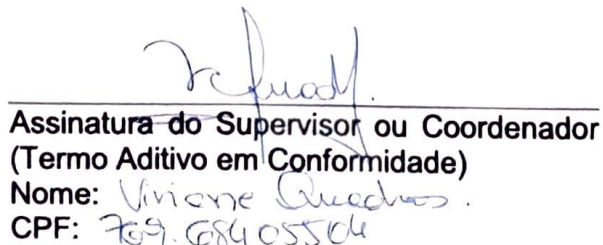 Assinatura do Supervisor ou Coordenador
(Termo Aditivo em Conformidade)
Nome: Viviane Quadros.
CPF: